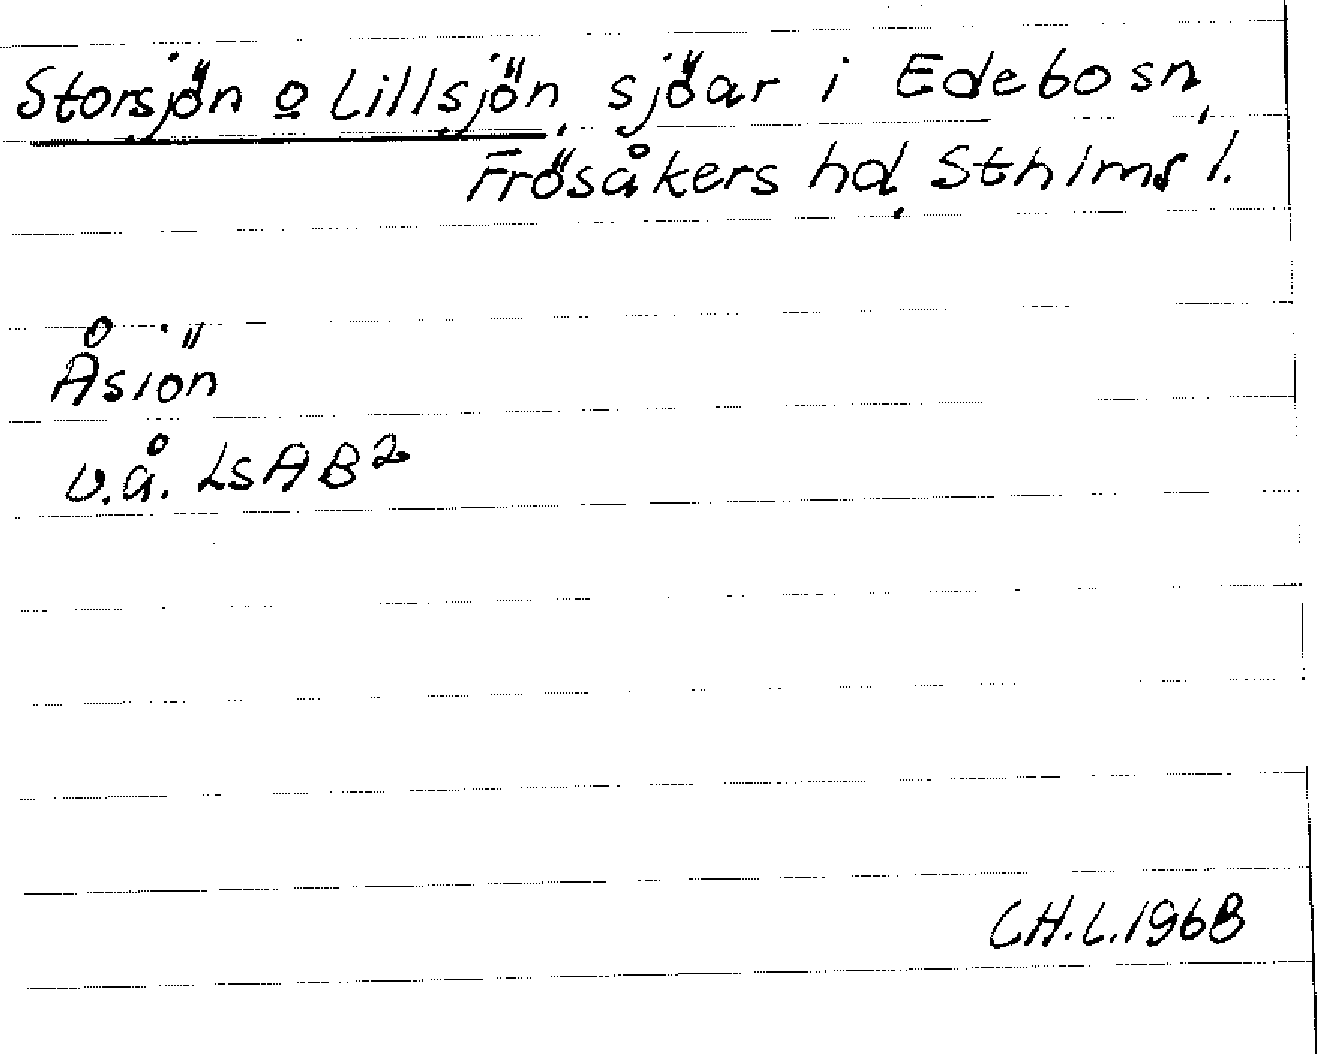 Storsjön o Lillsjön, sjöar i Edebo sn,
Frösåkers hd, Sthlms l.
Åsiön
u.å. LSAB²
C.H.L. 1968